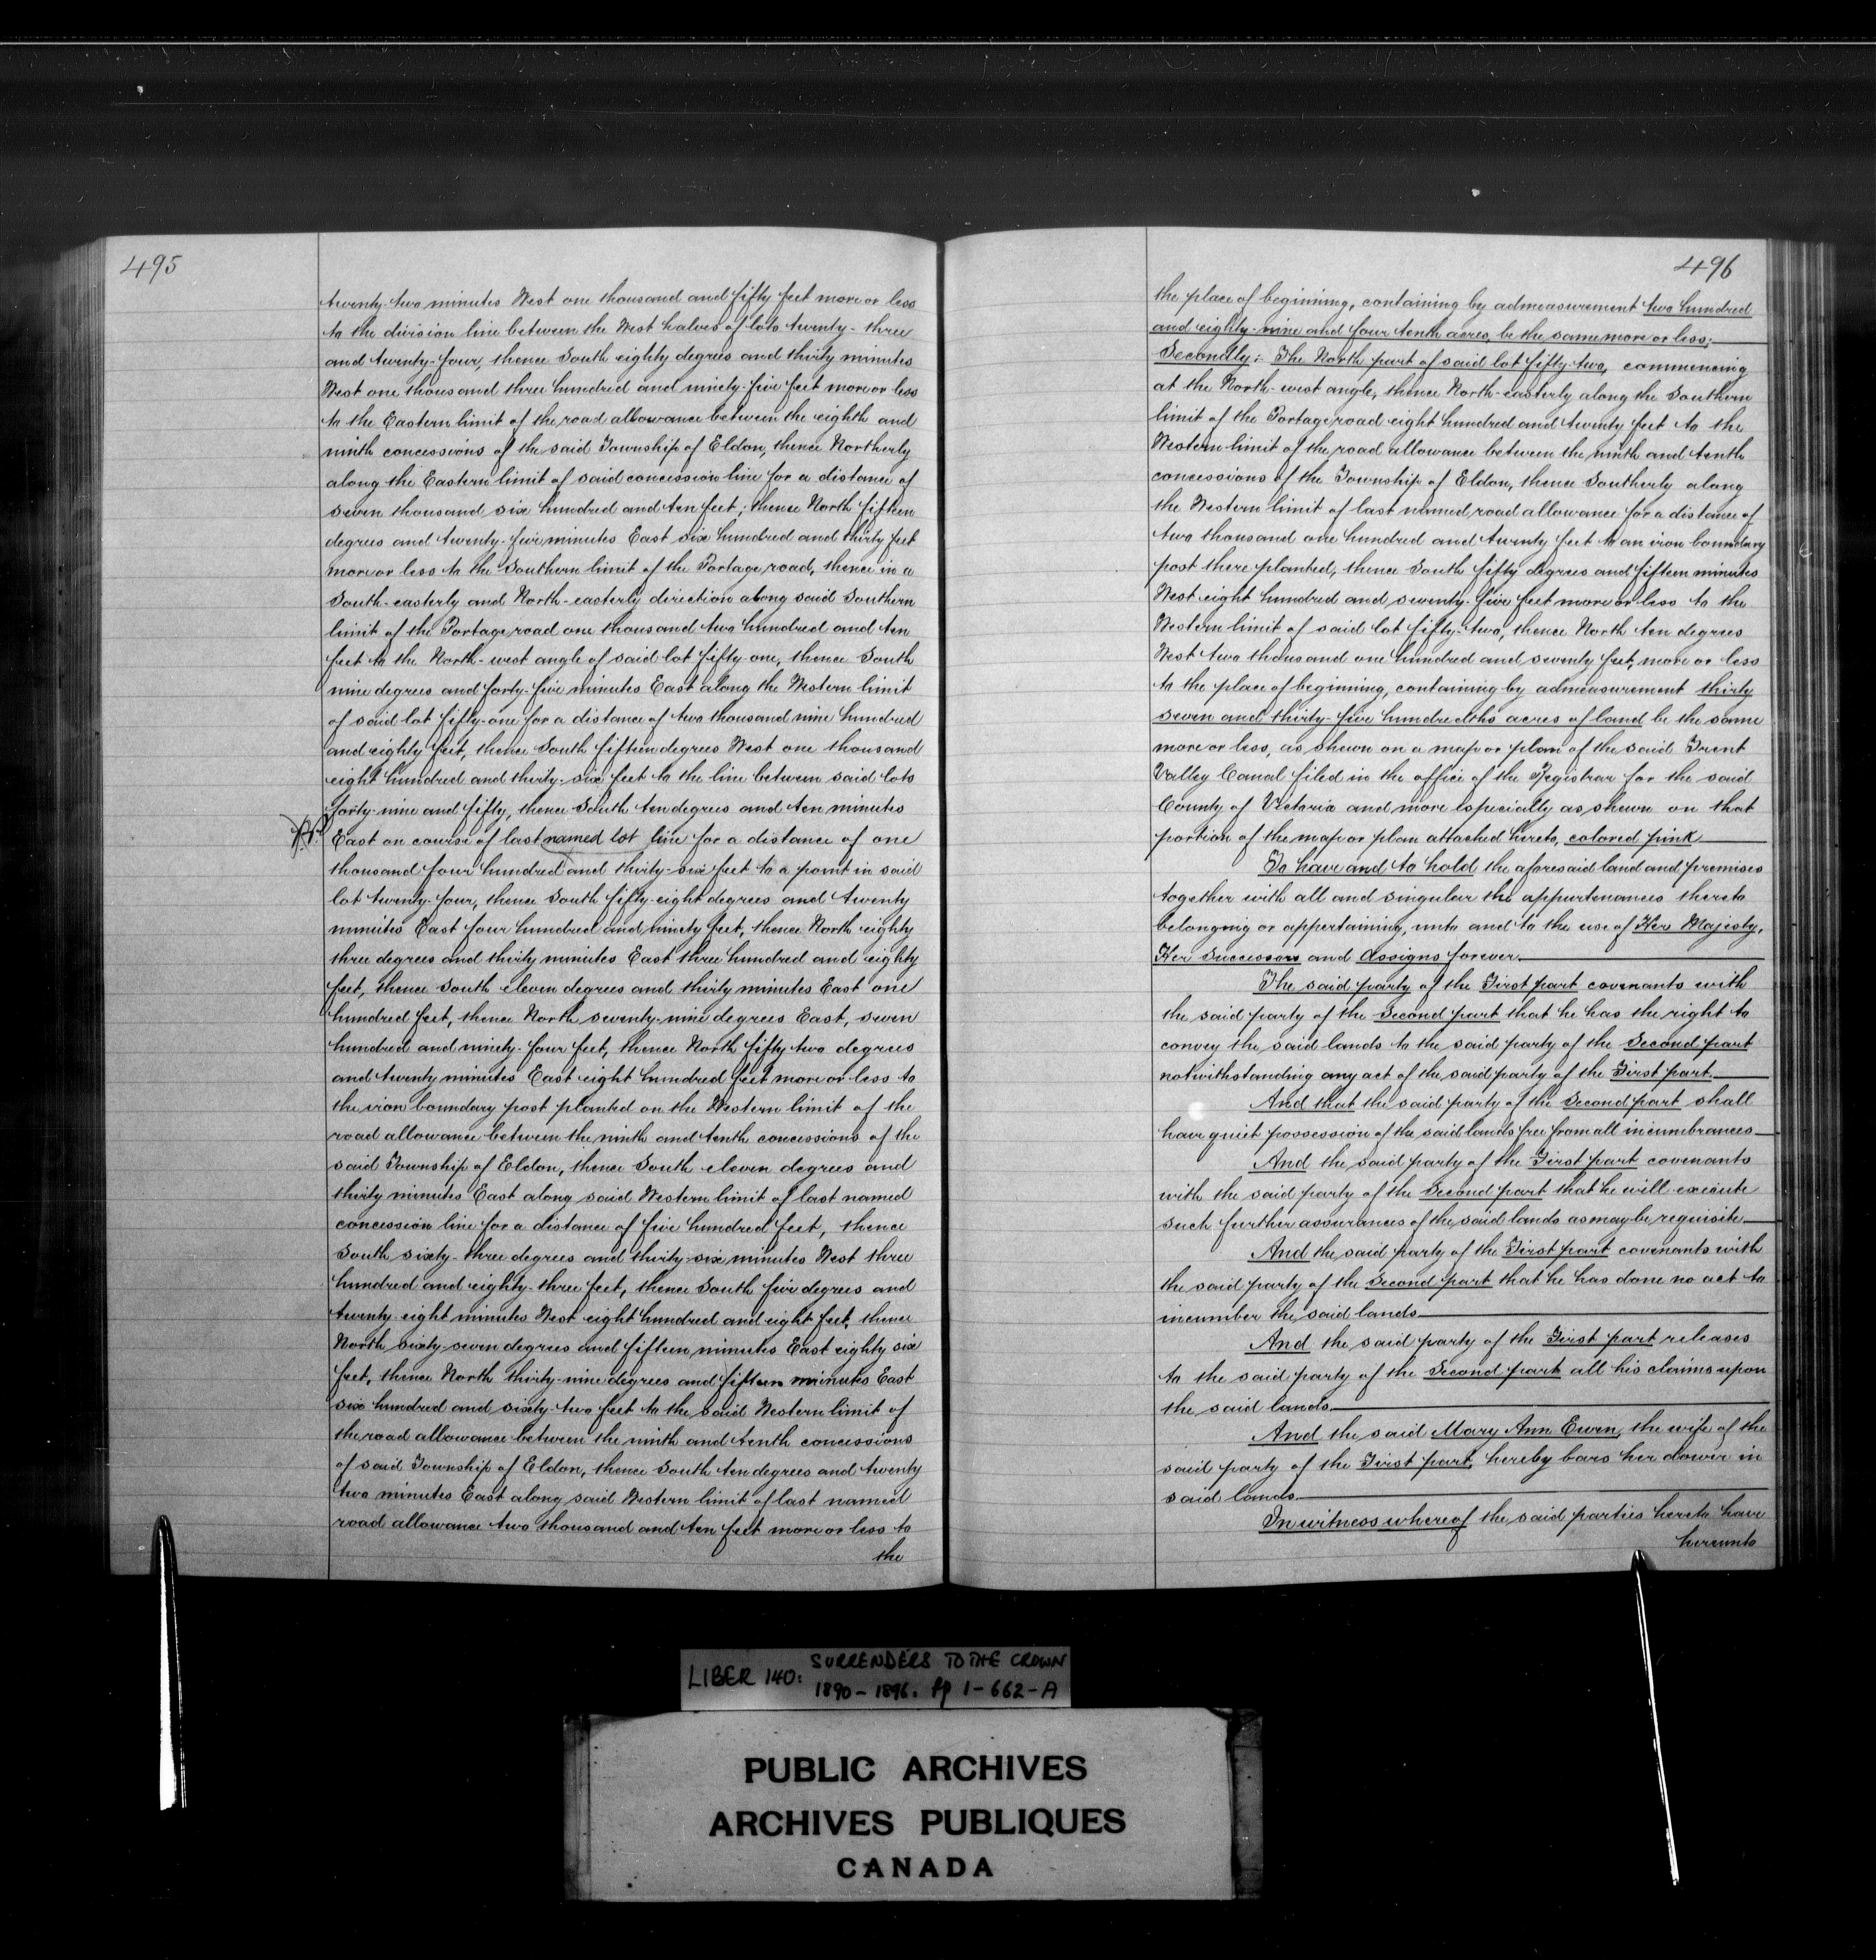 495
twenty-two minutes West one thousand and fifty feet more or less
to the division line between the West halves of lots twenty-three
and twenty-four, thence South eighty degrees and thirty minutes
West one thousand three hundred and ninety-five feet more or less
to the Eastern limit of the road allowance between the eighth and
ninth concessions of the said Township of Eldon, thence Northerly
along the Eastern limit of said concession line for a distance of
seven thousand six hundred and ten feet; thence North fifteen
degrees and twenty-five minutes East six hundred and thirty feet
more or less to the Southern limit of the Portage road, thence in a
South-easterly and North-easterly direction along said Southern
limit of the Portage road one thousand two hundred and ten
feet to the North-west angle of said lot fifty-one, thence South
nine degrees and forty-five minutes East along the Western limit
of said lot fifty-one for a distance of two thousand nine hundred
and eighty feet, thence South fifteen degrees West one thousand
eight hundred and thirty-six feet to the line between said lots
forty-nine and fifty, thence South ten degrees and ten minutes
East on course of last named lot line for a distance of one
thousand four hundred and thirty-six feet to a point in said
lot twenty-four, thence South fifty-eight degrees and twenty
minutes East four hundred and ninety feet, thence North eighty
three degrees and thirty minutes East three hundred and eighty
feet, thence South eleven degrees and thirty minutes East one
hundred feet, thence North seventy-nine degrees East, seven
hundred and ninety-four feet, thence North fifty two degrees
and twenty minutes East eight hundred feet more or less to
the iron boundary post planted on the Western limit of the
road allowance between the ninth and tenth concessions of the
said Township of Eldon, thence South eleven degrees and
thirty minutes East along said Western limit of last named
concession line for a distance of five hundred feet, thence
South sixty-three degrees and thirty-six minutes West three
hundred and eighty-three feet, thence South five degrees and
twenty-eight minutes West eight hundred and eight feet, thence
North sixty-seven degrees and fifteen minutes East eighty six
feet, thence North thirty-nine degrees and fifteen minutes East
six hundred and sixty-two feet to the said Western limit of
the road allowance between the ninth and tenth concessions
of said Township of Eldon, thence South ten degrees and twenty
two minutes East along said Western limit of last named
road allowance two thousand and ten feet more or less to
the
496
the place of begining, containing by admeasurement two hundred
and eighty-nine and four tenth acres, be the same more or less;
Secondly: The North part of said lot fifty-two, commencing
at the North-west angle, thence North-easterly along the Southern
limit of the Portage road eight hundred and twenty feet to the
Western limit of the road allowance between the ninth and tenth
concessions of the Township of Eldon, thence Southerly along
the Western limit of last named road allowance for a distance of
two thousand one hundred and twenty feet to an iron boundary
post there planted, thence South fifty degrees and fifteen minutes
West eight hundred and seventy-five feet more or less to the
Western limit of said lot fifty-two, thence North ten degrees
West two thousand one hundred and seventy feet, more or less
to the place of beginning, containing by admeasurement thirty
seven and thirty-five hundredths acres of land be the same
more or less, as shewn on a map or plan of the said Trent
Valley Canal filed in the office of the Registrar for the said
County of Victoria and more especially as shewn on that
portion of the map or plan attached hereto, colored pink
To have and to hold the aforesaid land and premises
together with all and singular the appurtenances thereto
belonging or appertaining, unto and to the use of Her Majesty,
Her Successors and Assigns forever.
The said party of the First part covenants with
the said party of the Second part that he has the right to
convey the said lands to the said party of the Second part
notwithstanding any act of the said party of the First part.
And that the said party of the Second part shall
have quiet possession of the said lands free from all incumbrances
And the said party of the First part covenants
with the said party of the Second part that he will execute
such further assurances of the said lands as may be requisite
And the said party of the First part covenants with
the said party of the Second part that he has done no act to
incumber the said lands
And the said party of the First part releases
to the said party of the Second part all his claims upon
the said lands
And the said Mary Ann Ewen, the wife of the
said party of the First part, hereby bars her dower in
said lands
In witness whereof the said parties hereto have
hereunto
LIBER 140: SURRENDERS TO THE CROWN
1890-1896. Pp 1-662-A
PUBLIC ARCHIVES
ARCHIVES PUBLIQUES
CANADA